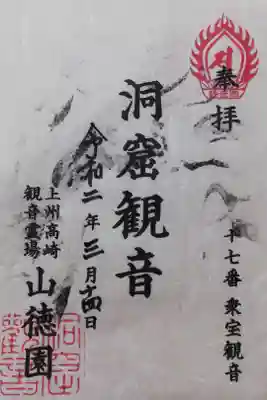 奉拝
十七番 衆宝観音
洞窟観音
令和二年三月十四日
上州高崎
観音霊場
山徳園